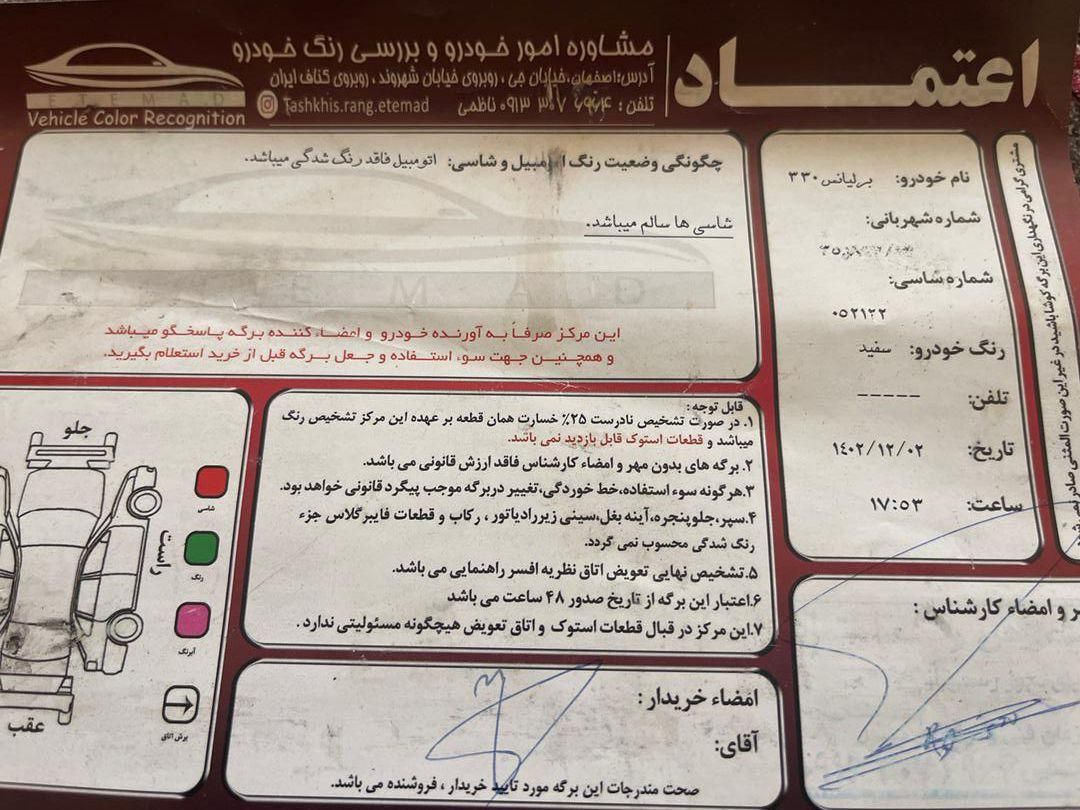 اعتمـــاد
مشاوره امور خودرو و بررسی رنگ خودرو
آدرس:اصفهان،خیابان جی ، روبروی خیابان شهروند ، روبروی کناف ایران
تلفن : ناظمی
Tashkhis.rang.etemad
ETEMAD
Vehicle Color Recognition
مشتری گرامی در نگهداری این برگه کوشا باشید در غیر این صورت المثنی صادر نمی شود
نام خودرو: برلیانس ۳۳۰
شماره شهربانی:
شماره شاسی:
۰۵۲۱۲۲
رنگ خودرو: سفید
تلفن: -----
تاریخ: ۱۴۰۲/۱۲/۰۲
ساعت: ۱۷:۵۳
چگونگی وضعیت رنگ اتومبیل و شاسی: اتومبیل فاقد رنگ شدگی میباشد.
شاسی ها سالم میباشد.
این مرکز صرفاً به آورنده خودرو و اعضاء کننده برگه پاسخگو میباشد
و همچنین جهت سوء استفاده و جعل برگه قبل از خرید استعلام بگیرید.
قابل توجه:
۱. در صورت تشخیص نادرست ۲۵٪ خسارت همان قطعه بر عهده این مرکز تشخیص رنگ
میباشد و قطعات استوک قابل بازدید نمی باشد.
۲. برگه های بدون مهر و امضاء کارشناس فاقد ارزش قانونی می باشد.
۳.هرگونه سوء استفاده،خط خوردگی،تغییر دربرگه موجب پیگرد قانونی خواهد بود.
۴.سپر،جلوپنجره،آینه بغل،سینی زیررادیاتور ، رکاب و قطعات فایبرگلاس جزء
رنگ شدگی محسوب نمی گردد.
۵.تشخیص نهایی تعویض اتاق نظریه افسر راهنمایی می باشد.
۶.اعتبار این برگه از تاریخ صدور ۴۸ ساعت می باشد
۷.این مرکز در قبال قطعات استوک و اتاق تعویض هیچگونه مسئولیتی ندارد .
جلو
راست
عقب
شاسی
رنگ
آبرنگ
برش اتاق
امضاء خریدار :
آقای:
صحت مندرجات این برگه مورد تایید خریدار ، فروشنده می باشد.
ر و امضاء کارشناس :